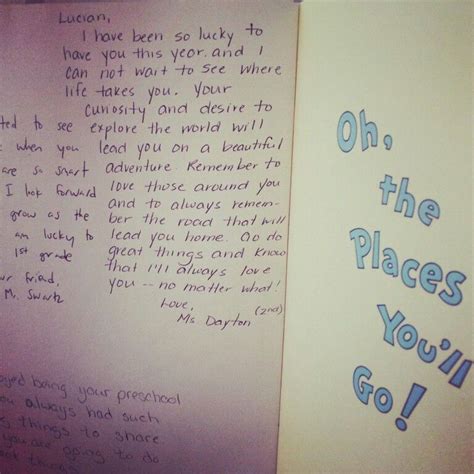 Lucian,
I have been so lucky to
have you this year. and I
can not wait to see where
life takes you. Your
curiosity and desire to
explore the world will
lead you on a beautiful
adventure. Remember to
love those around you
and to always remem-
ber the road that will
lead you home. Go do
great things and know
that I'll always love
you -- no matter what!
Love,
Ms. Dayton
(2nd)
ted to see
when you
are so smart
I look forward
grow as the
am lucky to
1st grade
ur friend,
Ms. Swartz
eyed being your preschool
ou always had such
g things to share
you are going to do
things
Oh,
the
Places
You'll
Go!